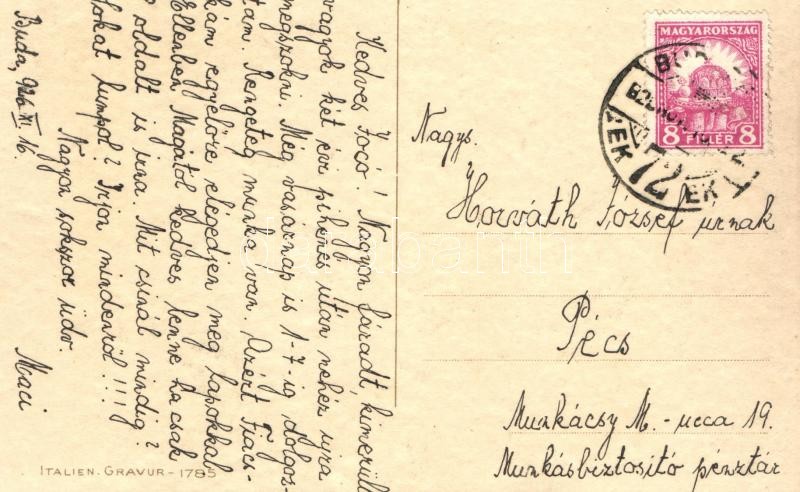 Kedves Jocó! Nagyon fáradt, kimerült
vagyok két évi pihenés után nehéz ujra
megszokni. Még vasárnap is 1-7-ig dolgoz-
tam. Rengeteg munka van. Azért Fiacs-
kám egyelőre elégedjen meg lapokkal
Ellenben Magától kedves lenne ha csak
oldalt is irna. Mit csinál mindig?
Sokat lumpol? Irjon mindenről!!!
Nagyon sokszor üdv.
Maci
Buda, 926 XI. 16.
ITALIEN. GRAVUR - 1785
MAGYARORSZÁG
8 FILLÉR 8
72
Nagys.
Horváth József úrnak
Pécs
Munkácsy M.-ucca 19.
Munkásbiztositó pénztár
darabanth